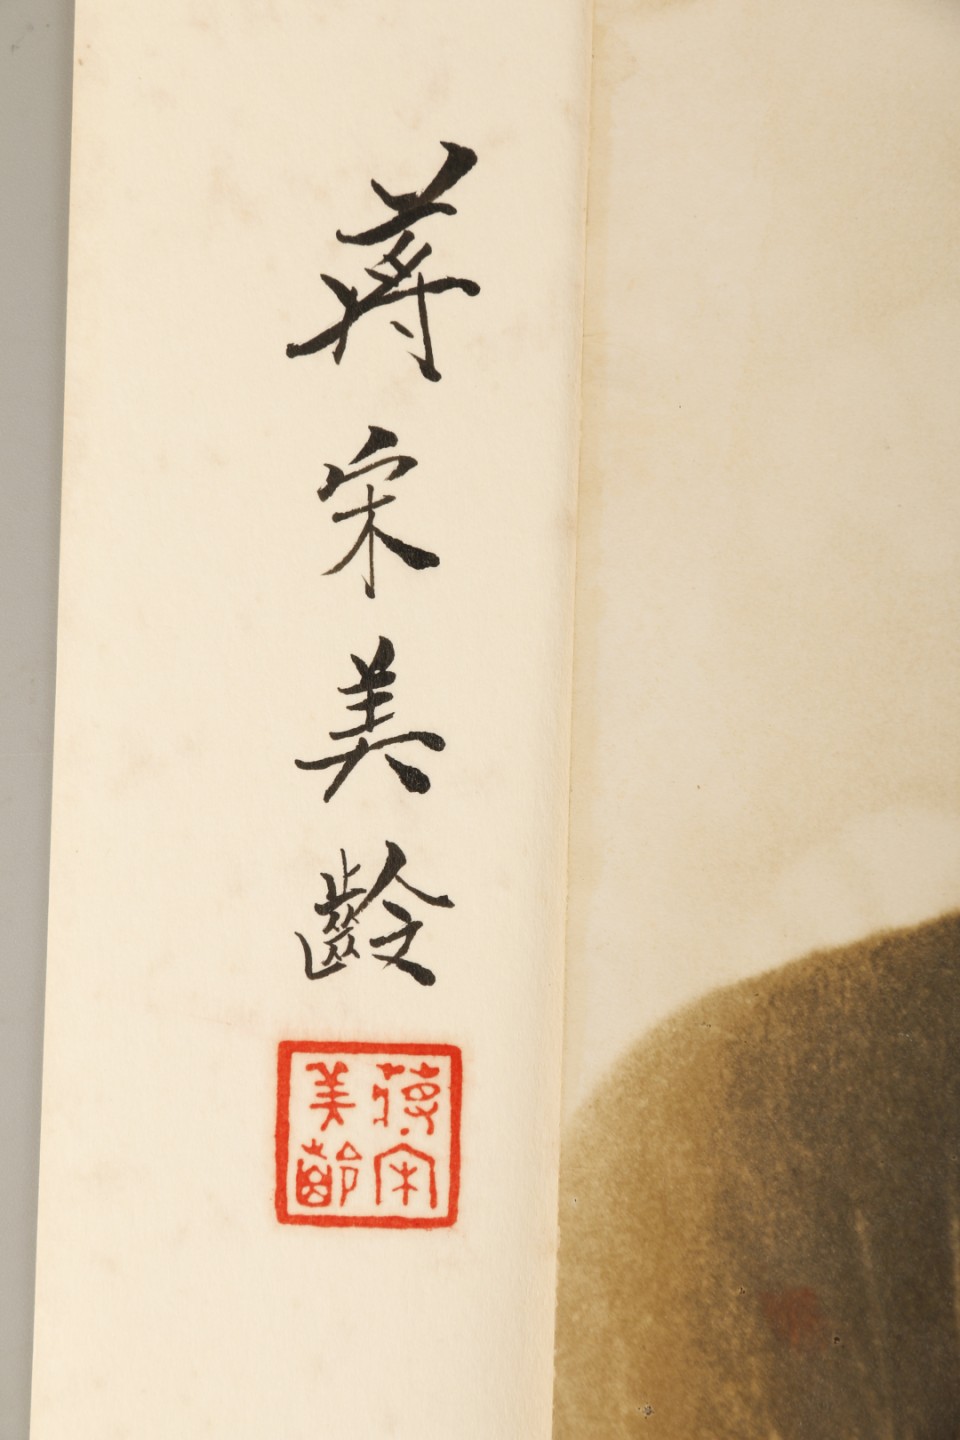 蔣宋美齡
蔣宋
美齡